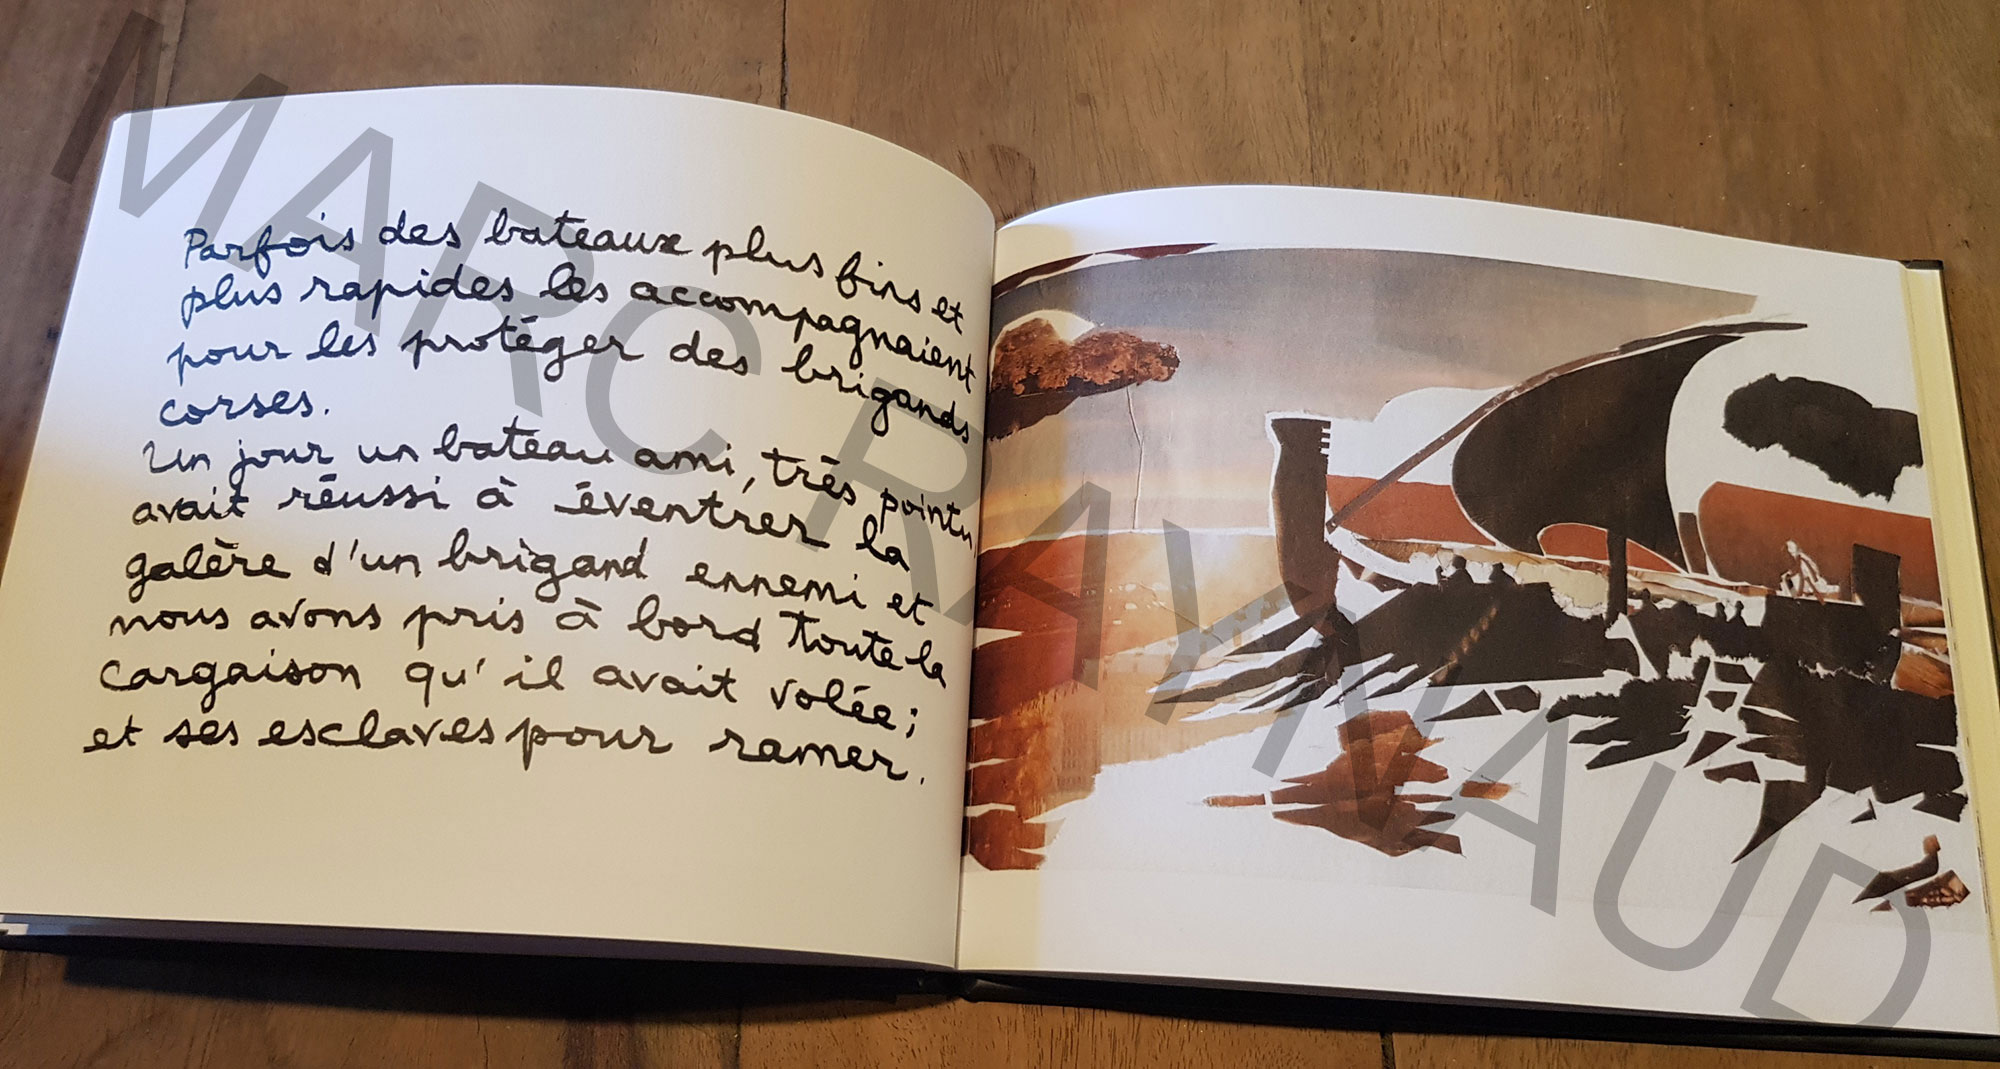 Parfois des bateaux plus fins et
plus rapides les accompagnaient
pour les protéger des brigands
corses.
Un jour un bateau ami, très pointu
avait réussi à éventrer la
galère d'un brigand ennemi et
nous avons pris à bord toute la
cargaison qu'il avait volée;
et ses esclaves pour ramer.
MARC RAYNAUD